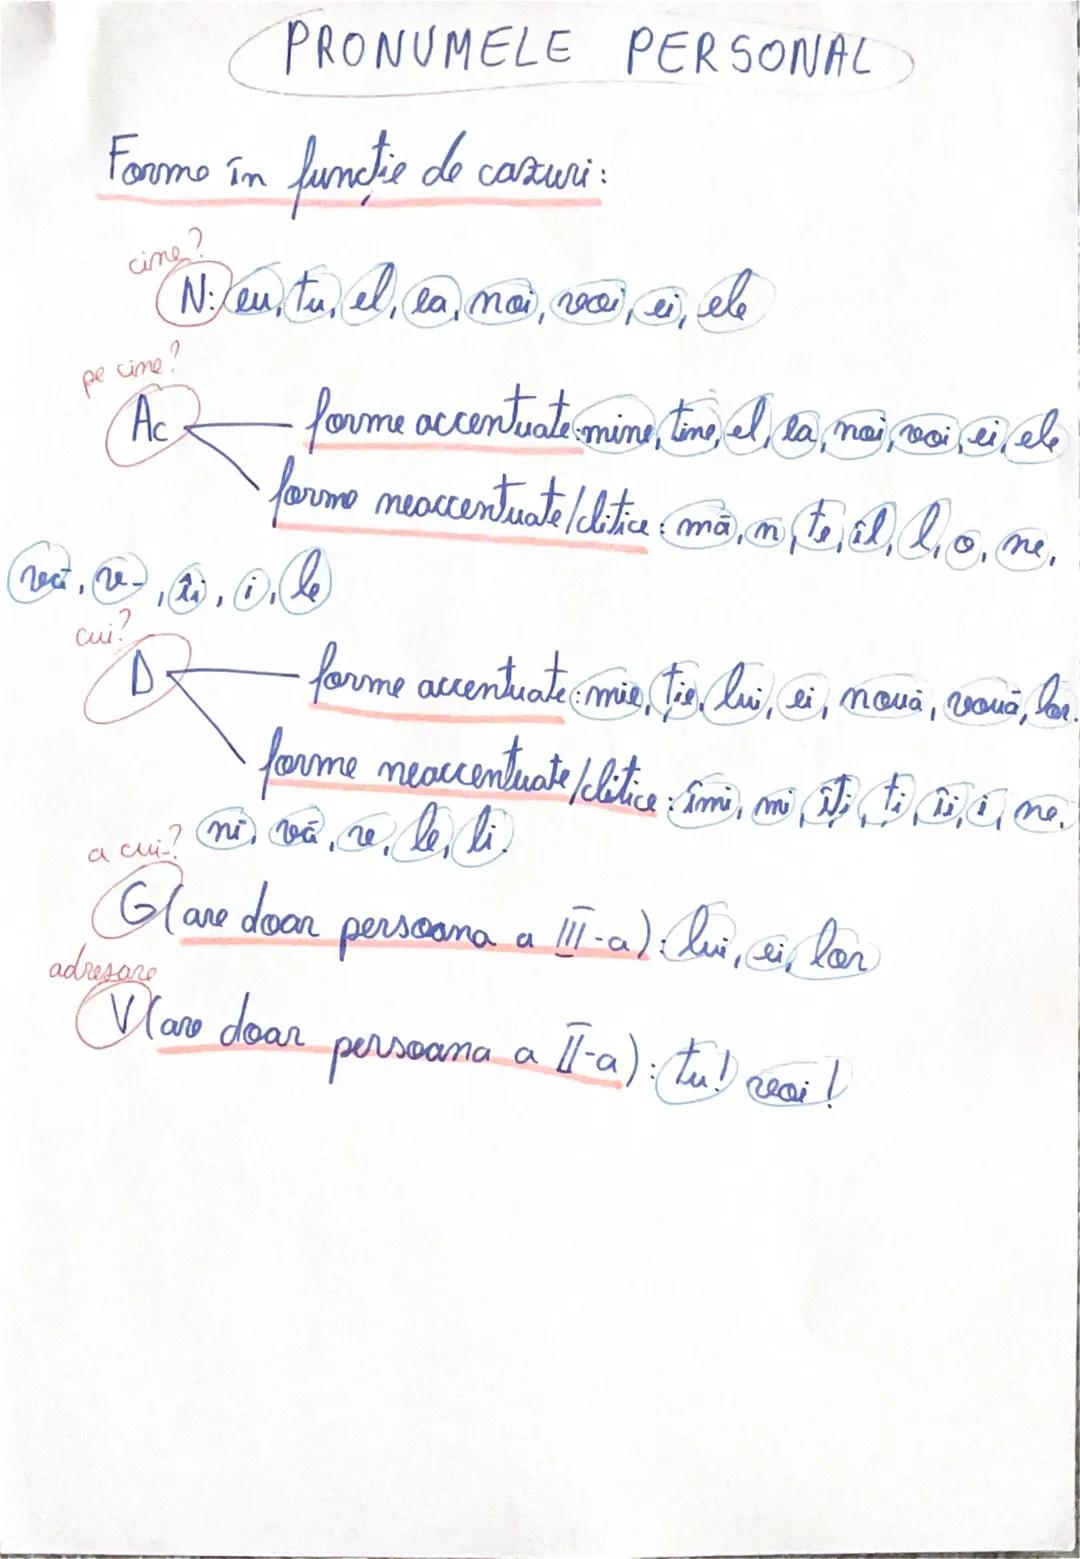 PRONUMELE PERSONAL
Forme în funcție de cazuri:
cine?
N: eu, tu, el, ea, noi, voi, ei, ele
pe cine?
Ac forme accentuate: mine, tine, el, ea, noi, voi, ei, ele
forme neaccentuate/clitice: mă, m, te, îl, l, o, ne,
vă, v-, îi, i, le
cui?
D forme accentuate: mie, ție, lui, ei, nouă, vouă, lor.
forme neaccentuate/clitice: îmi, mi, îți, ți, îi, i, ne,
ni, vă, v, le, li.
a cui?
G(are doar persoana a III-a): lui, ei, lor
adresare
V(are doar persoana a II-a): tu! voi!